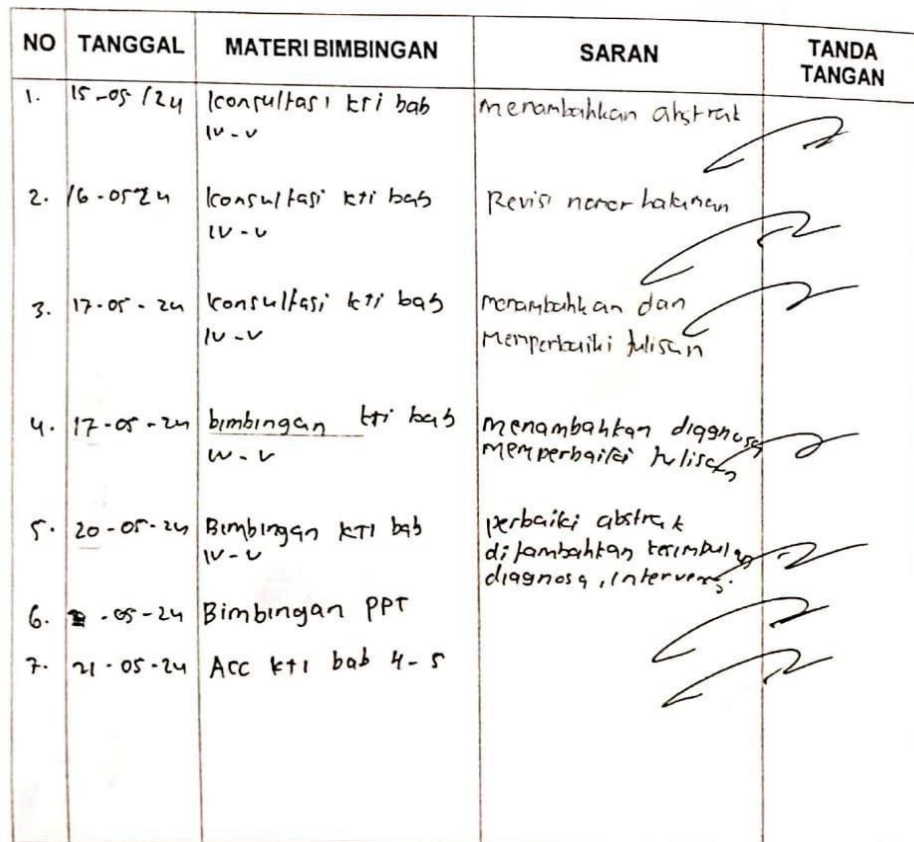 NO TANGGAL MATERI BIMBINGAN SARAN TANDA TANGAN
1. 15-05/24 Konsultasi kti bab menambahkan abstrak
IV-V
2. 16-0524 Konsultasi kti bab Revisi nomor halaman
IV-V
3. 17-05-24 Konsultasi kti bab menambahkan dan
IV-V memperbaiki tulisan
4. 17-05-24 bimbingan kti bab menambahkan diagnosa
IV-V memperbaiki tulisan
5. 20-05-24 Bimbingan KTI bab perbaiki abstrak
IV-V ditambahkan kesimpulan
diagnosa, intervensi.
6. -05-24 Bimbingan PPT
7. 21-05-24 Acc kti bab 4-5